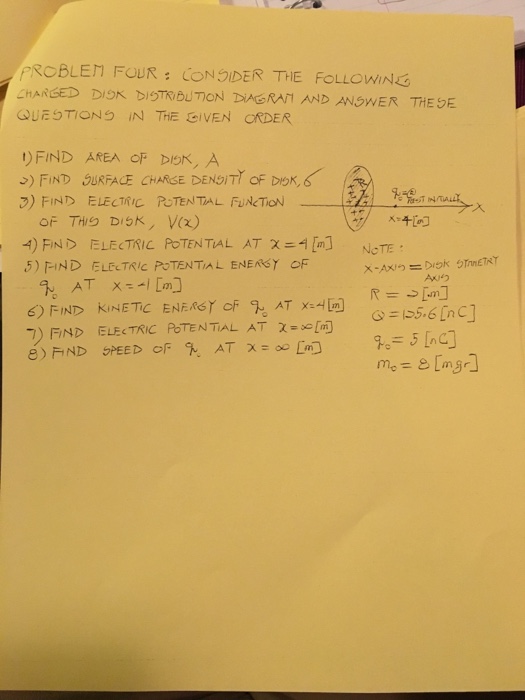 PROBLEM FOUR : CONSIDER THE FOLLOWING
CHARGED DISK DISTRIBUTION DIAGRAM AND ANSWER THESE
QUESTIONS IN THE GIVEN ORDER
1) FIND AREA OF DISK, A
2) FIND SURFACE CHARGE DENSITY OF DISK, σ
3) FIND ELECTRIC POTENTIAL FUNCTION
OF THIS DISK, V(x)
4) FIND ELECTRIC POTENTIAL AT x = 4 [m]
5) FIND ELECTRIC POTENTIAL ENERGY OF
q₀ AT x = 4 [m]
6) FIND KINETIC ENERGY OF q₀ AT x=4 [m]
7) FIND ELECTRIC POTENTIAL AT x = ∞ [m]
8) FIND SPEED OF q₀ AT x = ∞ [m]
REST INITIALLY
X
x=4 [m]
NOTE :
X-AXIS = DISK SYMMETRY
AXIS
R = 2 [m]
Q = 125.6 [nC]
q₀ = 5 [nC]
m₀ = 8 [mgr]